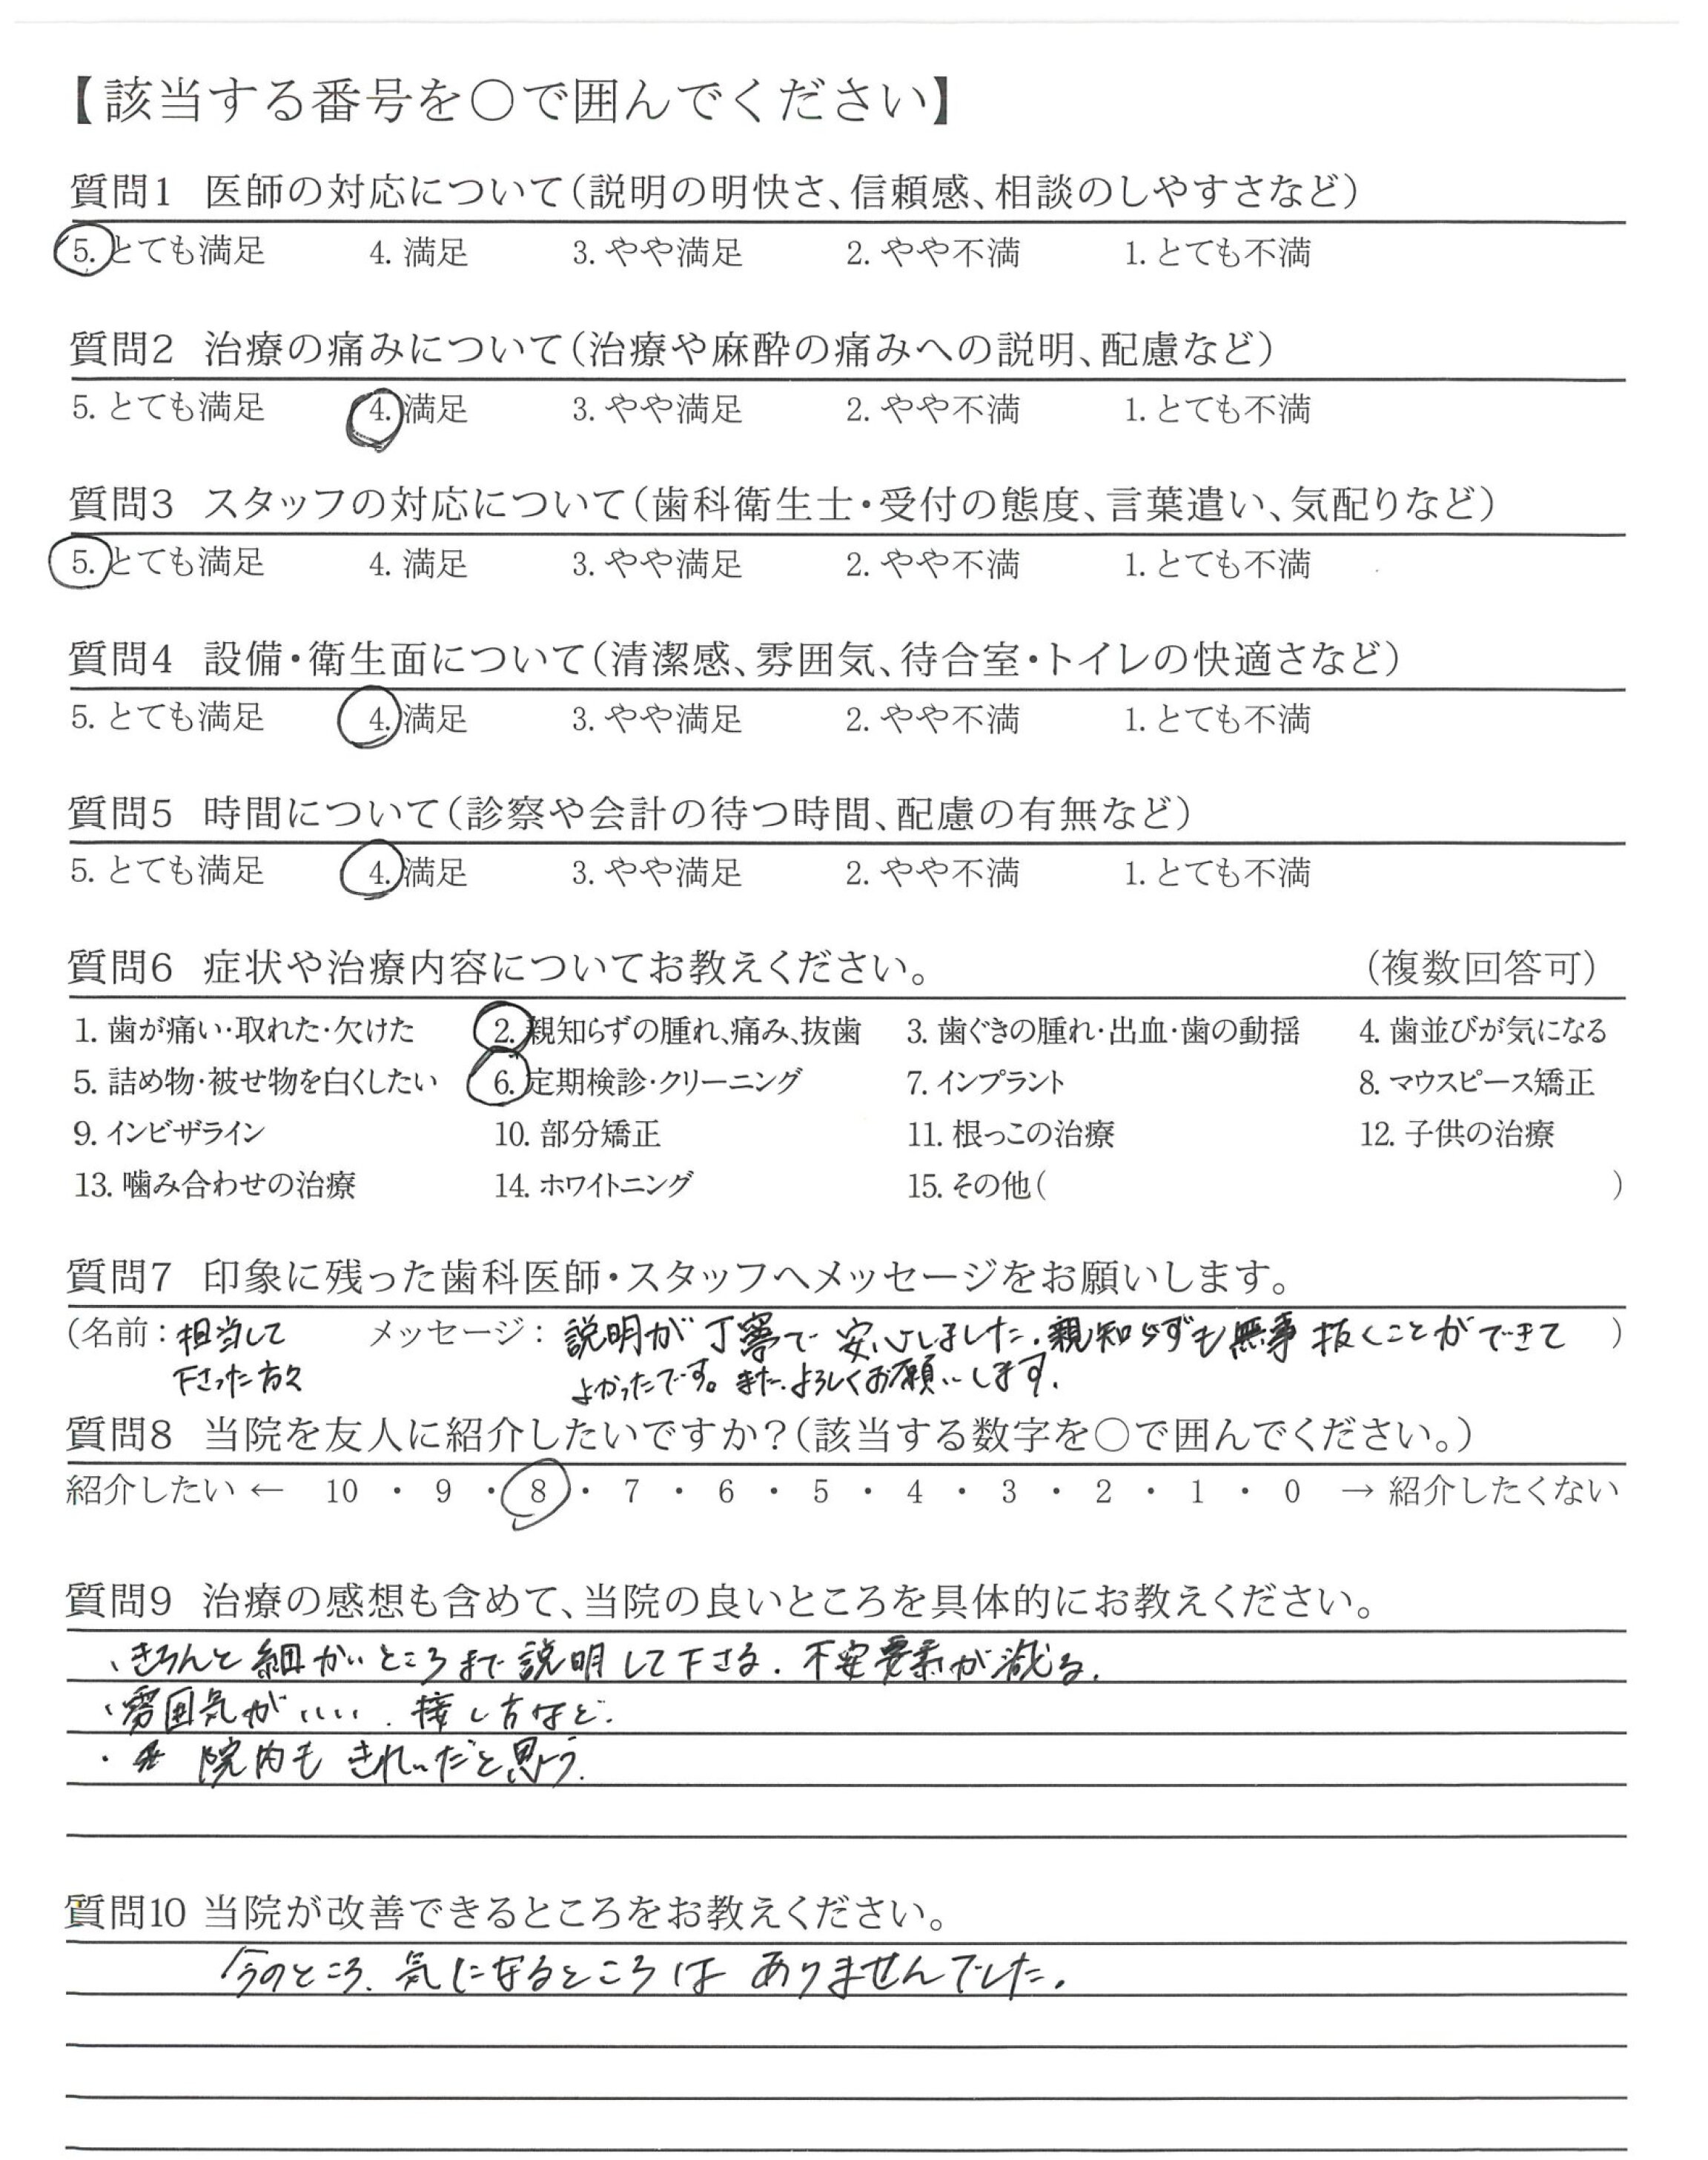 【該当する番号を○で囲んでください】
質問1 医師の対応について(説明の明快さ、信頼感、相談のしやすさなど)
5. とても満足 4. 満足 3. やや満足 2. やや不満 1. とても不満
質問2 治療の痛みについて(治療や麻酔の痛みへの説明、配慮など)
5. とても満足 4. 満足 3. やや満足 2. やや不満 1. とても不満
質問3 スタッフの対応について(歯科衛生士・受付の態度、言葉遣い、気配りなど)
5. とても満足 4. 満足 3. やや満足 2. やや不満 1. とても不満
質問4 設備・衛生面について(清潔感、雰囲気、待合室・トイレの快適さなど)
5. とても満足 4. 満足 3. やや満足 2. やや不満 1. とても不満
質問5 時間について(診察や会計の待つ時間、配慮の有無など)
5. とても満足 4. 満足 3. やや満足 2. やや不満 1. とても不満
質問6 症状や治療内容についてお教えください。 (複数回答可)
1. 歯が痛い・取れた・欠けた 2. 親知らずの腫れ、痛み、抜歯 3. 歯ぐきの腫れ・出血・歯の動揺 4. 歯並びが気になる
5. 詰め物・被せ物を白くしたい 6. 定期検診・クリーニング 7. インプラント 8. マウスピース矯正
9. インビザライン 10. 部分矯正 11. 根っこの治療 12. 子供の治療
13. 噛み合わせの治療 14. ホワイトニング 15. その他( )
質問7 印象に残った歯科医師・スタッフへメッセージをお願いします。
(名前：担当して メッセージ：説明が丁寧で安心しました。親知らずも無事抜くことができて )
下さった方々 よかったです。また、よろしくお願いします。
質問8 当院を友人に紹介したいですか?(該当する数字を○で囲んでください。)
紹介したい ← 10 ・ 9 ・ 8 ・ 7 ・ 6 ・ 5 ・ 4 ・ 3 ・ 2 ・ 1 ・ 0 → 紹介したくない
質問9 治療の感想も含めて、当院の良いところを具体的にお教えください。
・きちんと細かいところまで説明して下さる。不安要素が減る。
・雰囲気がいい。接し方など。
・院内もきれいだと思う。
質問10 当院が改善できるところをお教えください。
今のところ、気になるところはありませんでした。